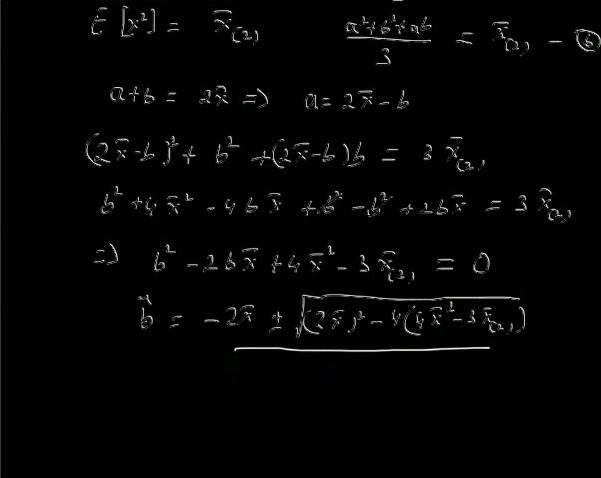 E [x²] = x̄₍₂₎ (a²+b²+ab)/3 = x̄₍₂₎ – ⑥
a+b = 2x̄ => a = 2x̄ – b
(2x̄-b)² + b² + (2x̄-b)b = 3 x̄₍₂₎
b² + 4x̄² - 4bx̄ + b² - b² + 2bx̄ = 3 x̄₍₂₎
=> b² - 2bx̄ + 4x̄² - 3x̄₍₂₎ = 0
b̂ = -2x̄ ± √((2x̄)² - 4(4x̄² - 3x̄₍₂₎)